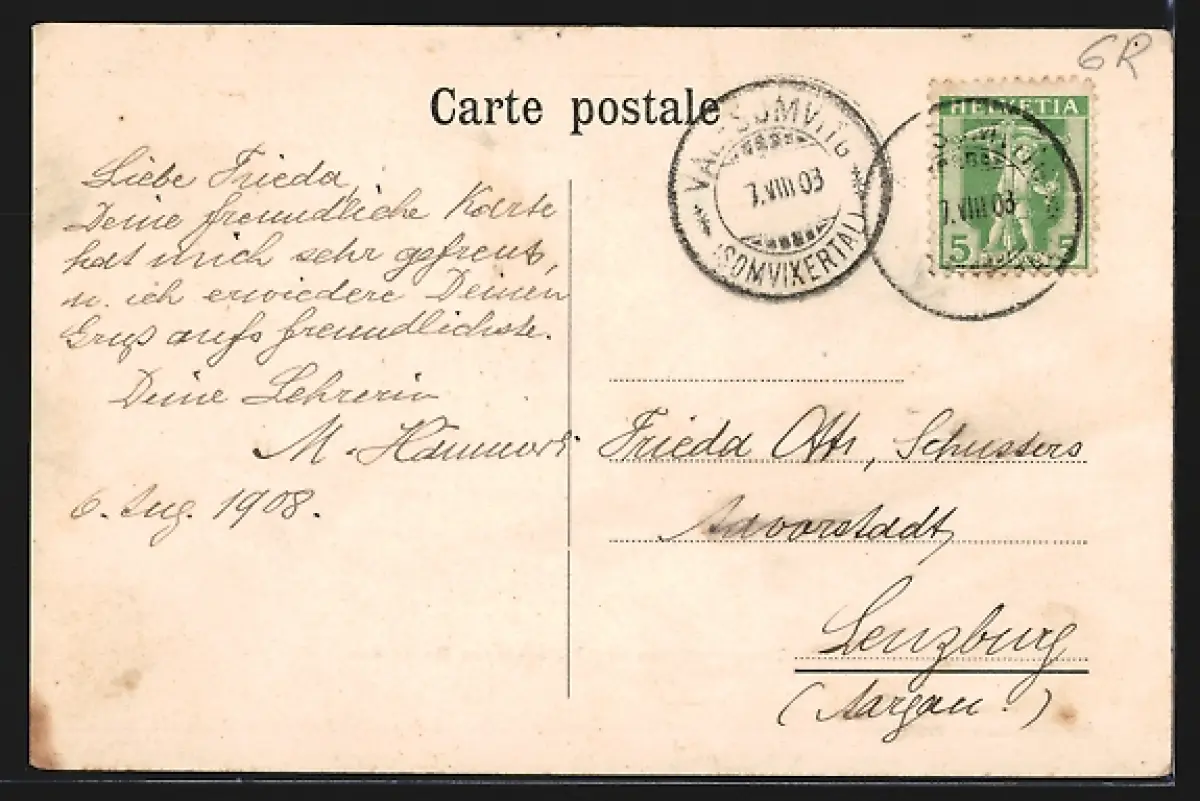 GR
Carte postale
VAL SOMVITG
7.VIII 08
(SOMVIXERTAL)
HELVETIA
7.VIII 08
5 5
Liebe Frieda,
Deine freundliche Karte
hat mich sehr gefreut,
u. ich erwiedere Deinen
Gruß aufs freundlichste.
Deine Lehrerin
M.
6. Aug. 1908.
Frieda Ott, Schusters
Aavorstadt,
Lenzburg
(Aargau.)